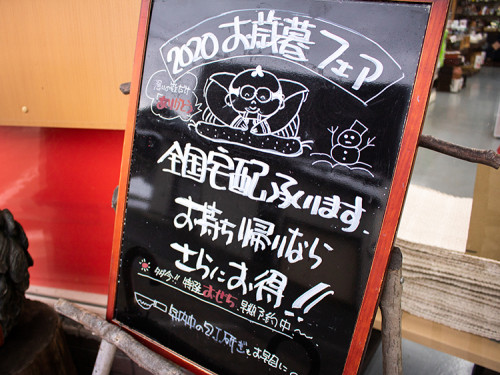 2020 お歳暮フェア
ありがとう
全国宅配承ります。
お持ち帰りなら
さらにお得!!
只今!! 特選おせち 早期予約中
年内中の包丁研ぎもお早目に